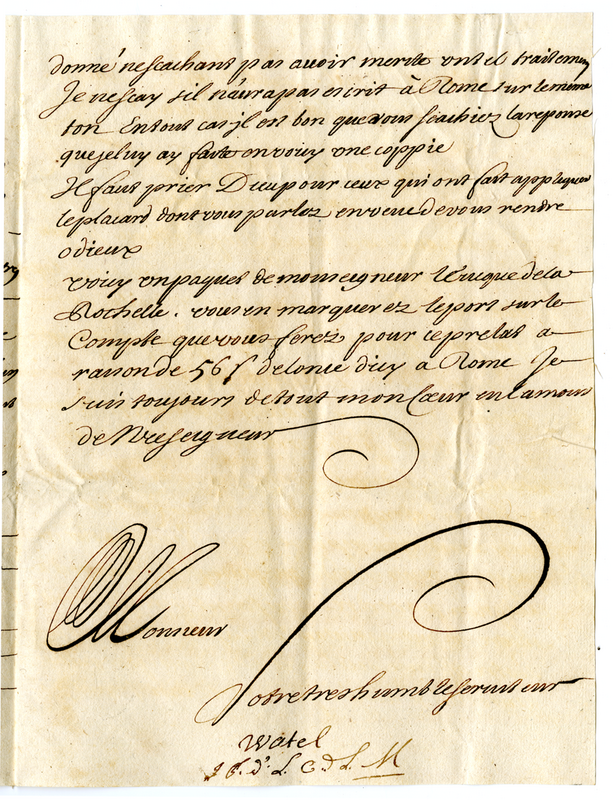 donné ne scachant pas avoir merité un tel traitemen
Je ne scay s'il n'aura pas escrit à Rome sur le meme
ton En tout cas il est bon que vous scachiez la reponse
que je luy ay faite en voicy une coppie
Il faut prier Dieu pour ceux qui ont fait appliquer
le placard dont vous parlez en veue de vous rendre
odieux
voicy un paquet de monseigneur l'evêque de la
Rochelle. vous en marquerez le port sur le
Compte que vous ferez pour ce prelat a
raison de 56 s de l'once d'icy a Rome Je
suis toujours de tout mon Coeur en l'amour
de Nre seigneur
Monsieur
Votre tres humble serviteur
Watel